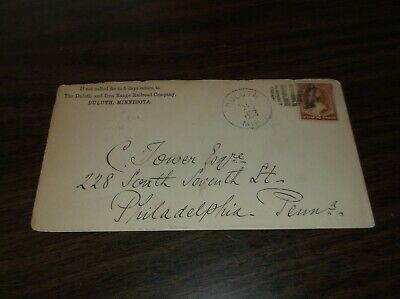 If not called for in 5 days return to
The Duluth and Iron Range Railroad Company,
DULUTH, MINNESOTA.
DULUTH
MIN
C. Tower Esqre
228 South Seventh St.
Philadelphia. Penna.